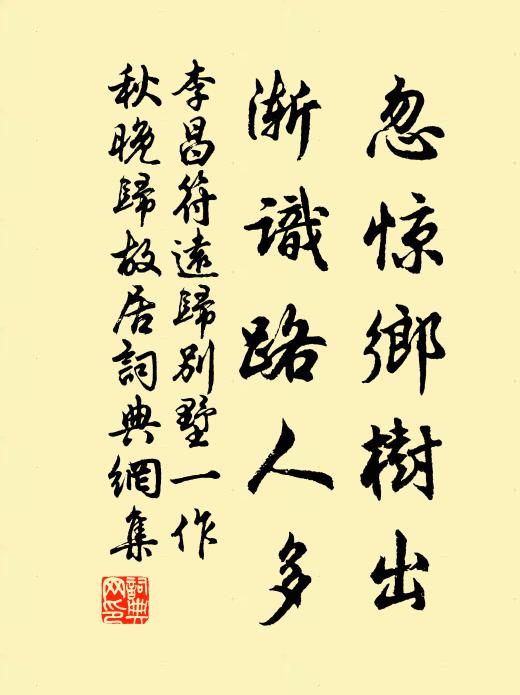 忽惊鄉樹出
漸識路人多
李昌符遠歸別墅一作
秋晚歸故居詞典網集
詞典
网印